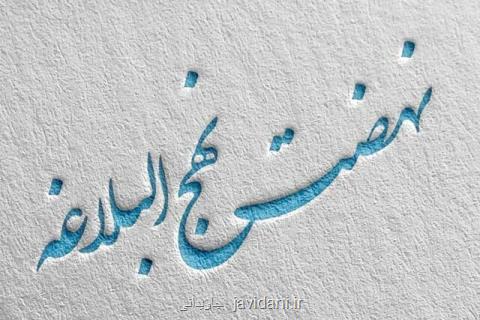 نهضت نهج البلاغه
جاودانی javidani.ir